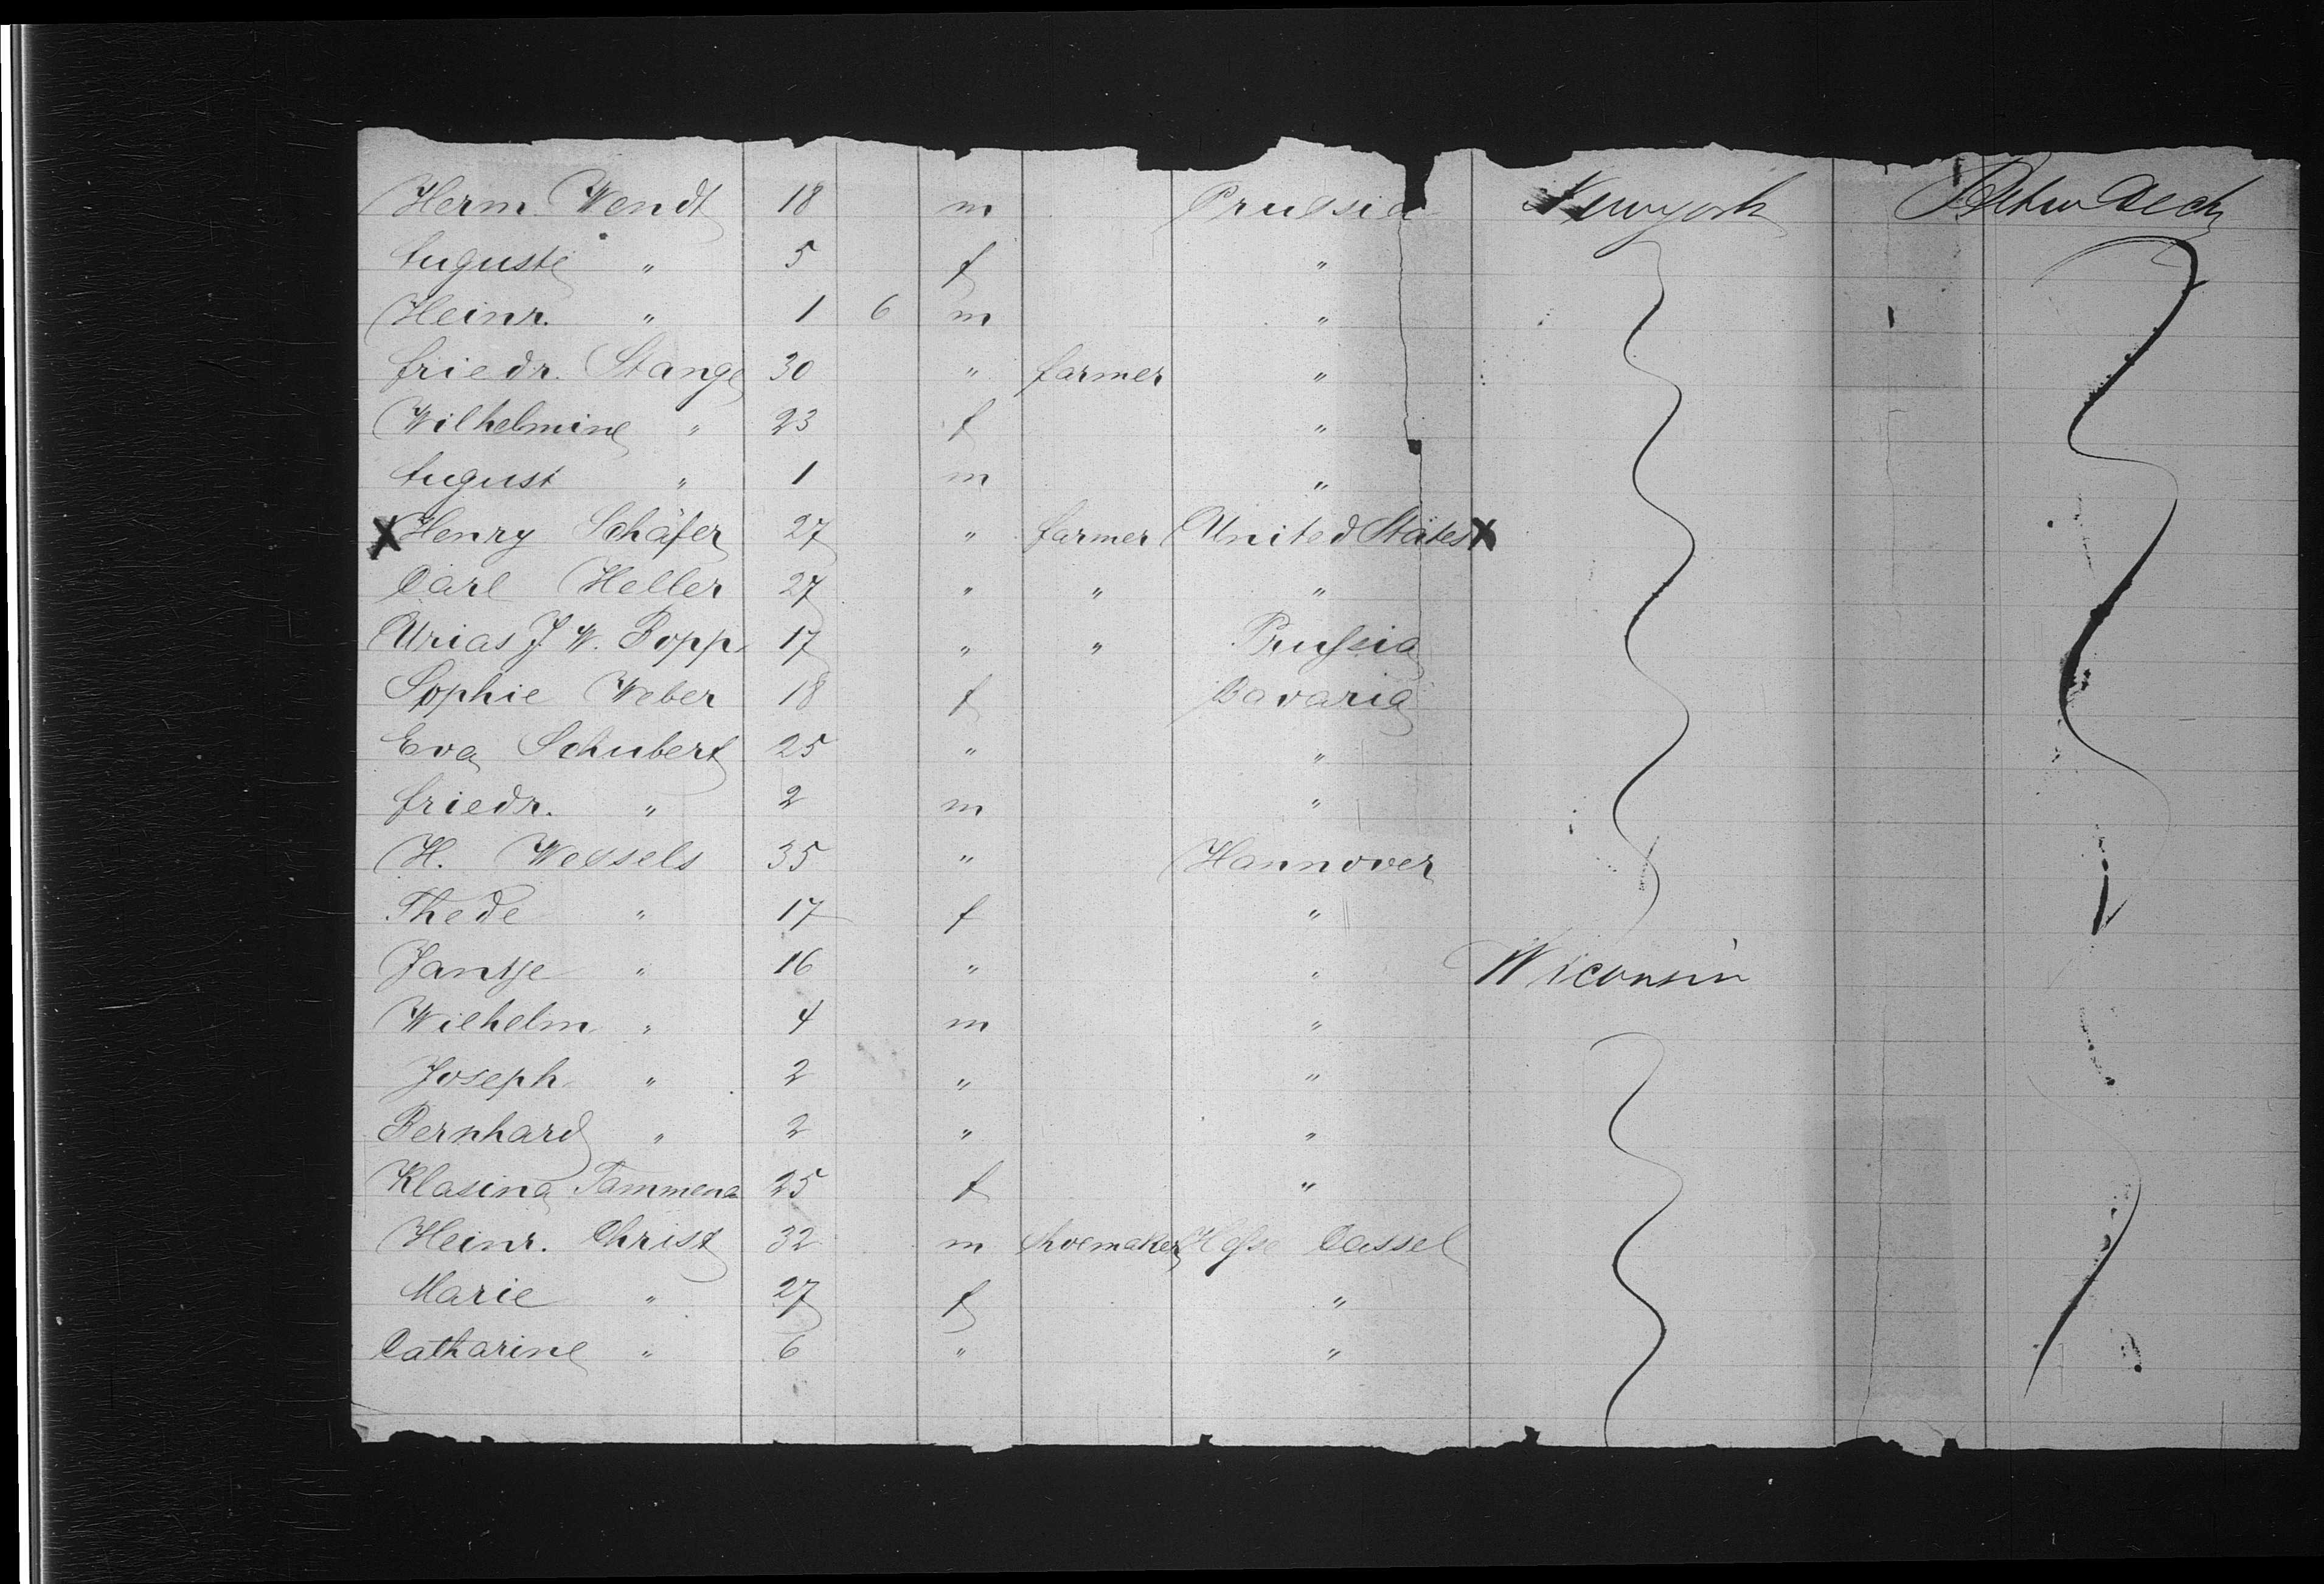 Herm. Wendt 18 m Prussia Newyork
Auguste " 5 f "
Heinr. " 1 6 m "
Friedr. Stange 30 " farmer "
Wilhelmine " 23 f "
August " 1 m "
X Henry Schäfer 27 " farmer United States X
Carl Heller 27 " " "
Urias J. W. Bopp 17 " " Prussia
Sophie Weber 18 f Bavaria
Eva Schubert 25 " "
Friedr. " 2 m "
H. Wessels 35 " Hannover
Thede " 17 f "
Jantje " 16 " " Wiconsin
Wilhelm " 4 m "
Joseph " 2 " "
Bernhard " 2 " "
Klasina Tammena 25 f "
Heinr. Christ 32 m Shoemaker Hesse Cassel
Marie " 27 f "
Catharine " 6 " "